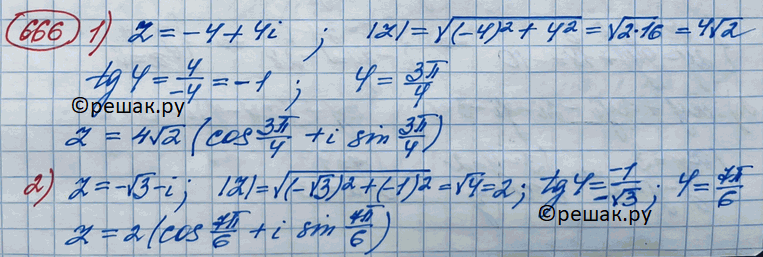 666 1) z = -4 + 4i ; |z| = √((-4)² + 4²) = √(2·16) = 4√2
tg φ = 4/-4 = -1 ; φ = 3π/4
©решак.ру
z = 4√2 (cos 3π/4 + i sin 3π/4)
2) z = -√3 - i ; |z| = √((-√3)² + (-1)²) = √4 = 2 ; tg φ = -1/-√3 ; φ = 7π/6
z = 2 (cos 7π/6 + i sin 7π/6)
©решак.ру